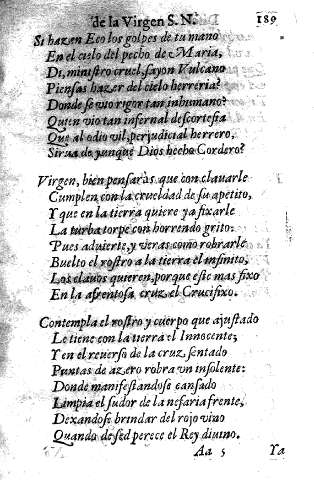 de la Virgen S. N. 189
Si hazen Eco los golpes de tu mano
En el cielo del pecho de Maria,
Di, ministro cruel, sayon Vulcano
Piensas hazer del cielo herreria?
Donde se vio rigor tan inhumano?
Quien vio tan infernal descortesia
Que al odio vil, perjudicial herrero,
Sirua de yunque Dios hecho Cordero?
Virgen, bien pensaràs que con clauarle
Cumplen con la crueldad de su apetito,
Y que en la tierra quiere ya fixarle
La turba torpe con horrendo grito:
Pues aduierte, y veras como robrarle
Buelto el rostro a la tierra el infinito,
Los clauos quieren, porque este mas fixo
En la afrentosa cruz el Crucifixo.
Contempla el rostro y cuerpo que ajustado
Le tiene con la tierra el Innocente;
Y en el reuerso de la cruz sentado
Puntas de azero robra vn insolente:
Donde manifestandose cansado
Limpia el sudor de la nefaria frente,
Dexandose brindar del rojo vino
Quando de sed perece el Rey diuino.
Aa 5 Ya